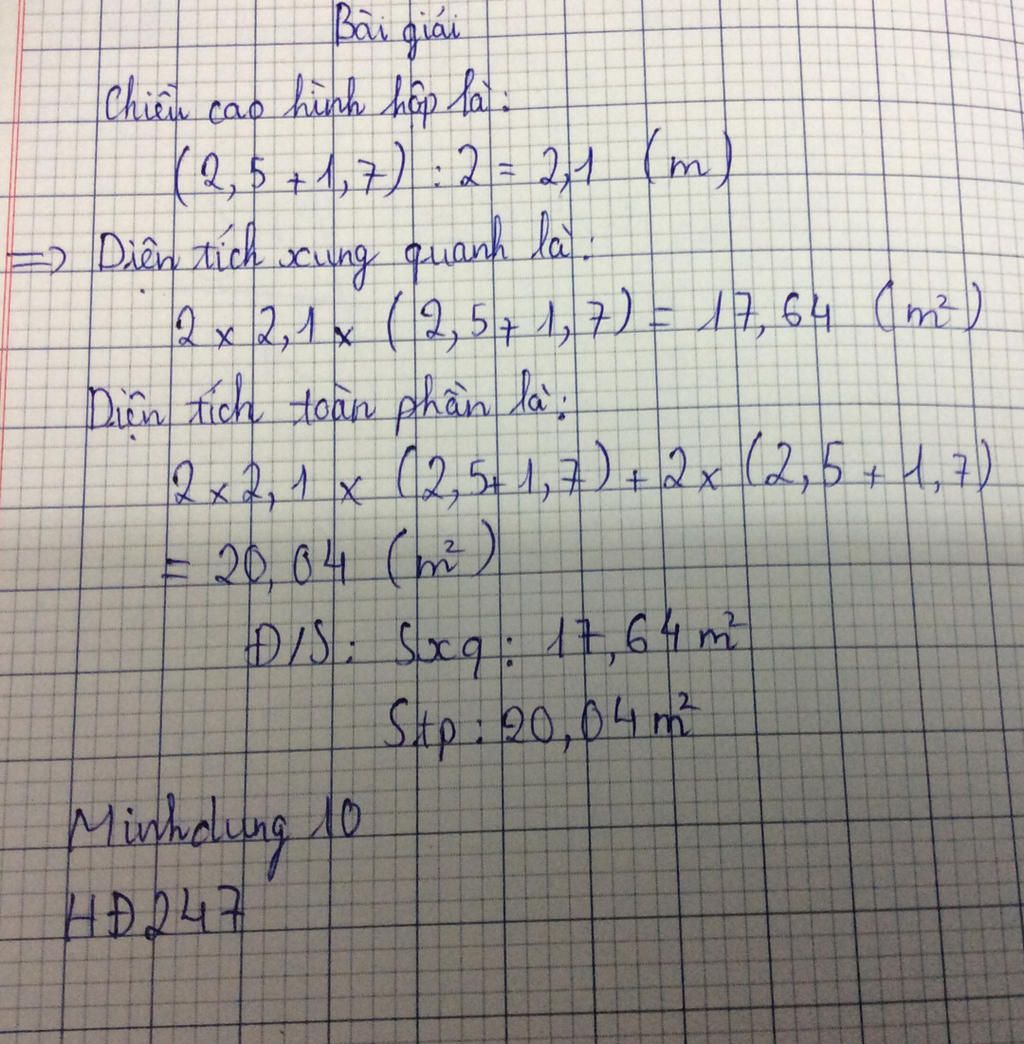 Bài giải
Chiều cao hình hộp là:
(2,5 + 1,7) : 2 = 2,1 (m)
=> Diện tích xung quanh là:
2 x 2,1 x (2,5 + 1,7) = 17,64 (m²)
Diện tích toàn phần là:
2 x 2,1 x (2,5 + 1,7) + 2 x (2,5 + 1,7)
= 20,04 (m²)
Đ/S: Sxq: 17,64 m²
Stp: 20,04 m²
Minhdung 10
HĐ247